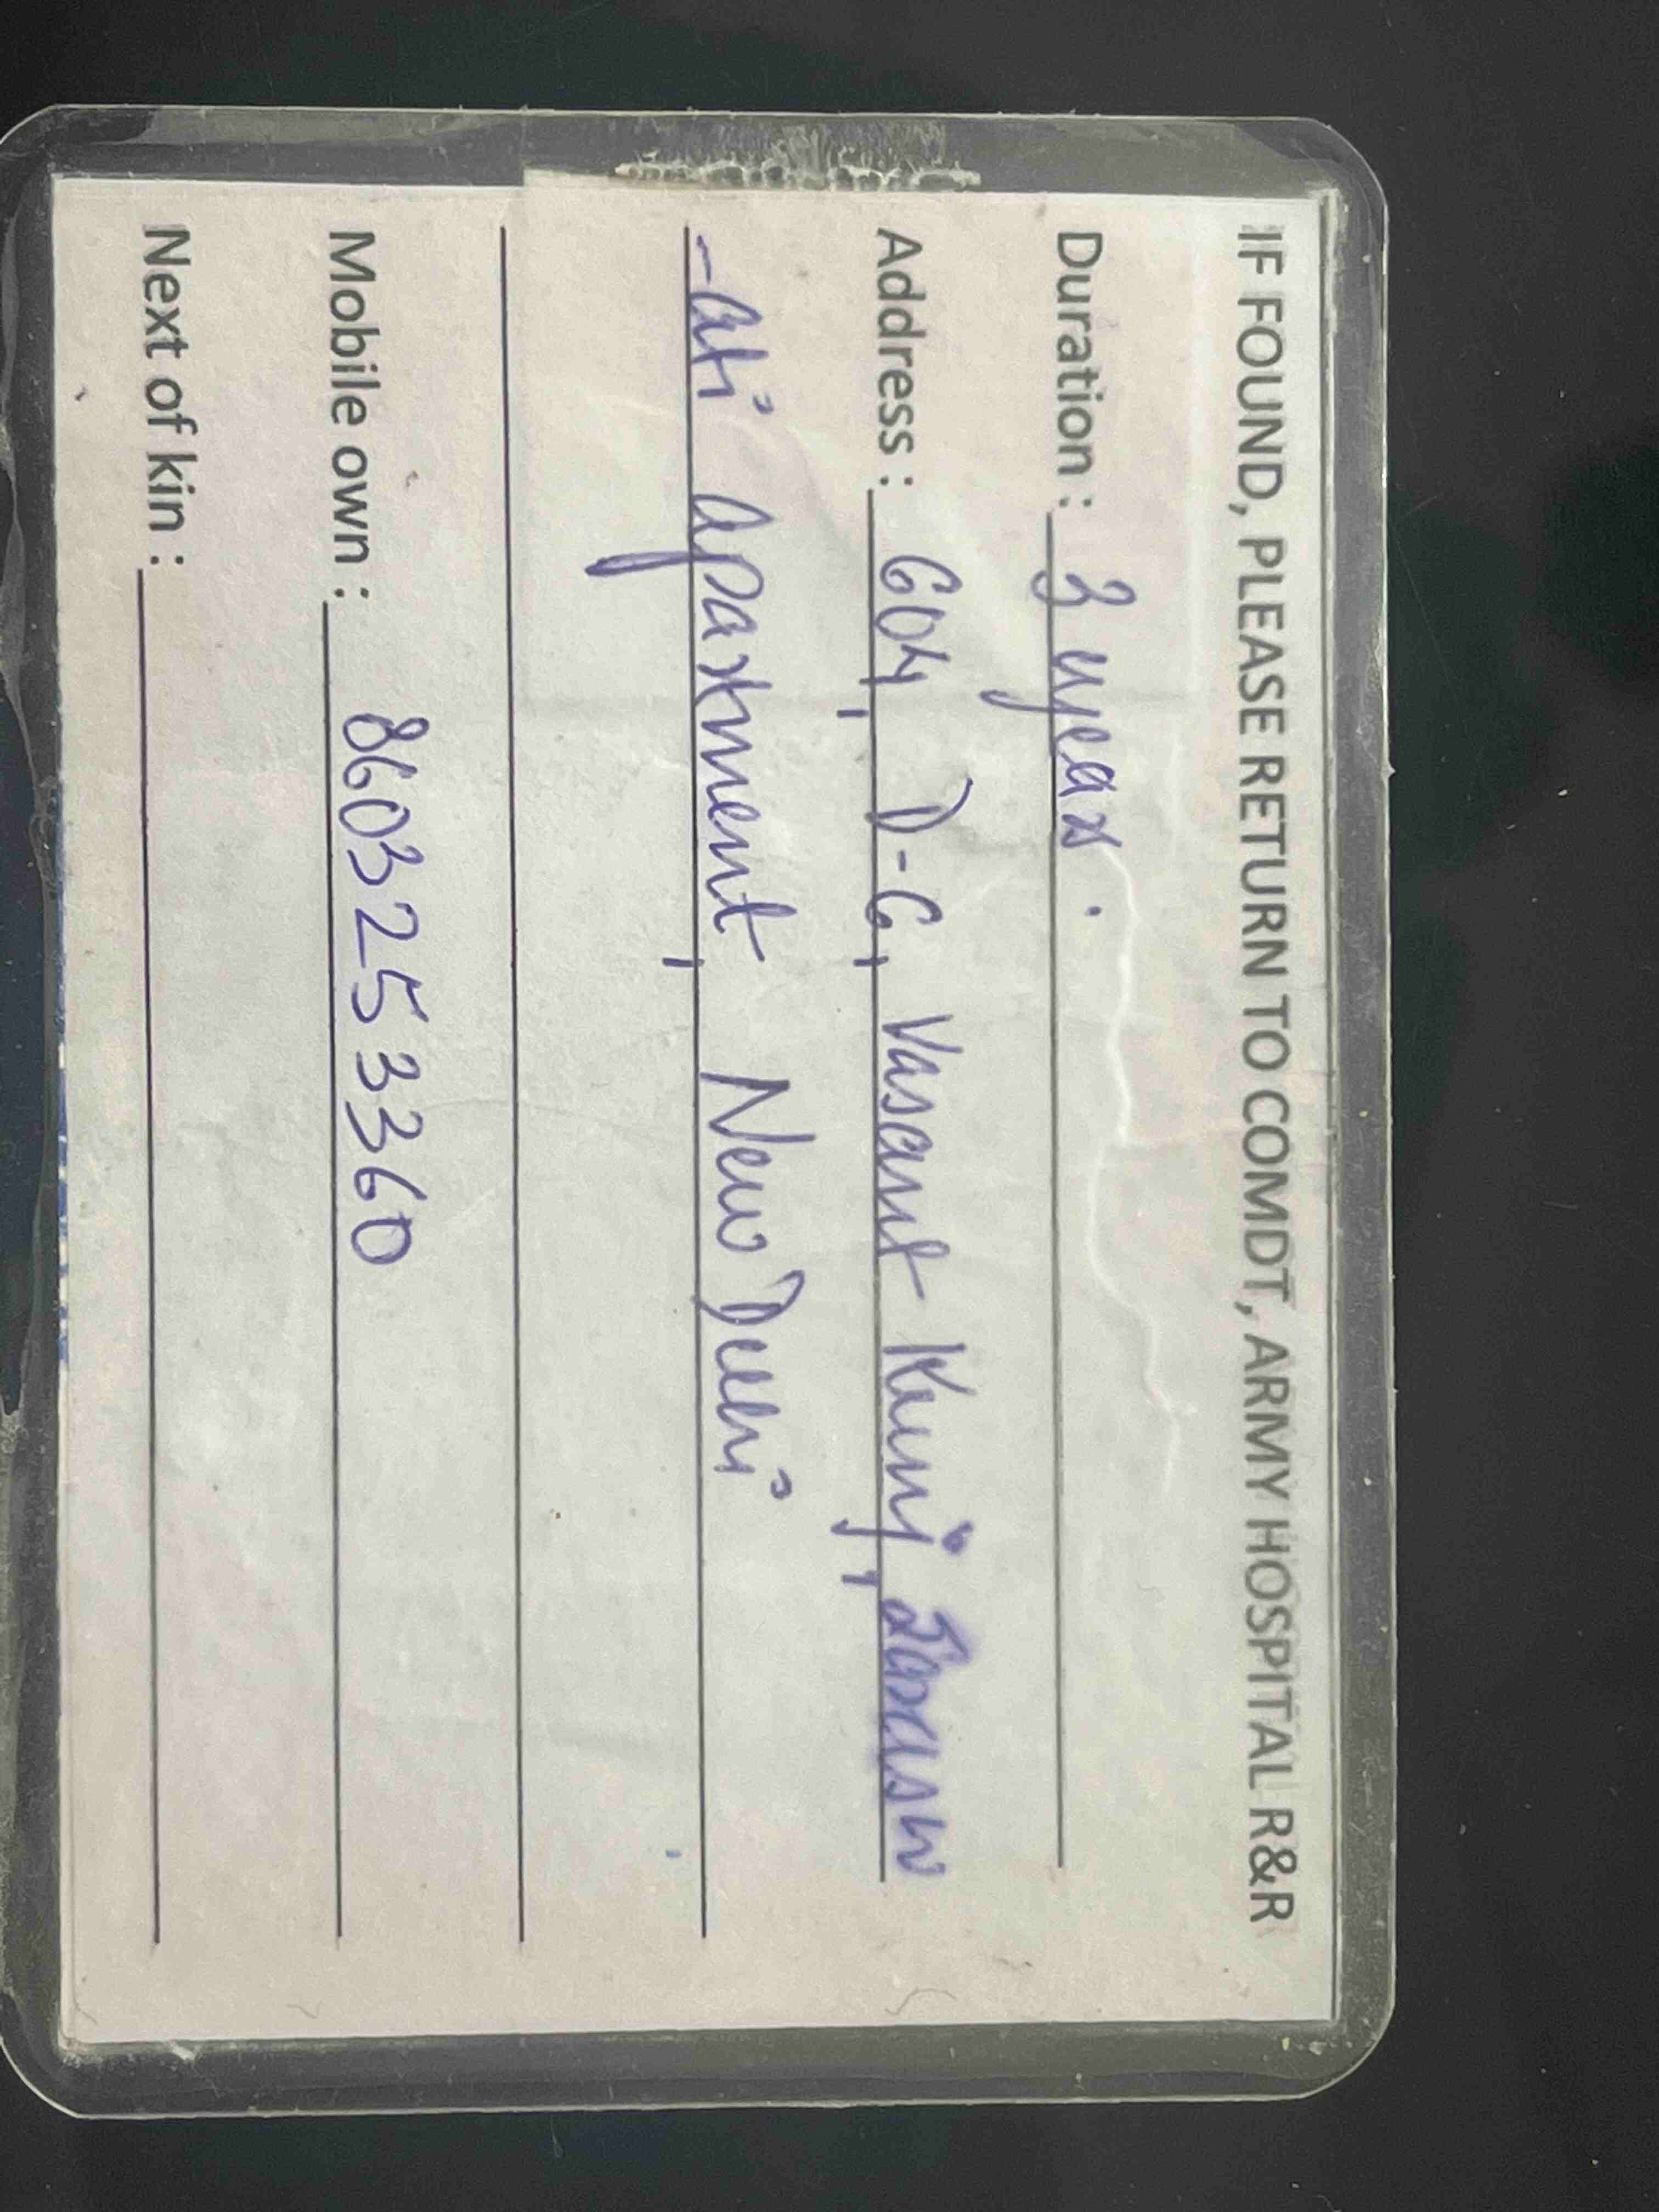 IF FOUND, PLEASE RETURN TO COMDT, ARMY HOSPITAL R&R
Duration : 3 year.
Address : 604, D-6, Vasant Kunj, Sarasw
-ati apartment, New Delhi
Mobile own : 8603253360
Next of kin :